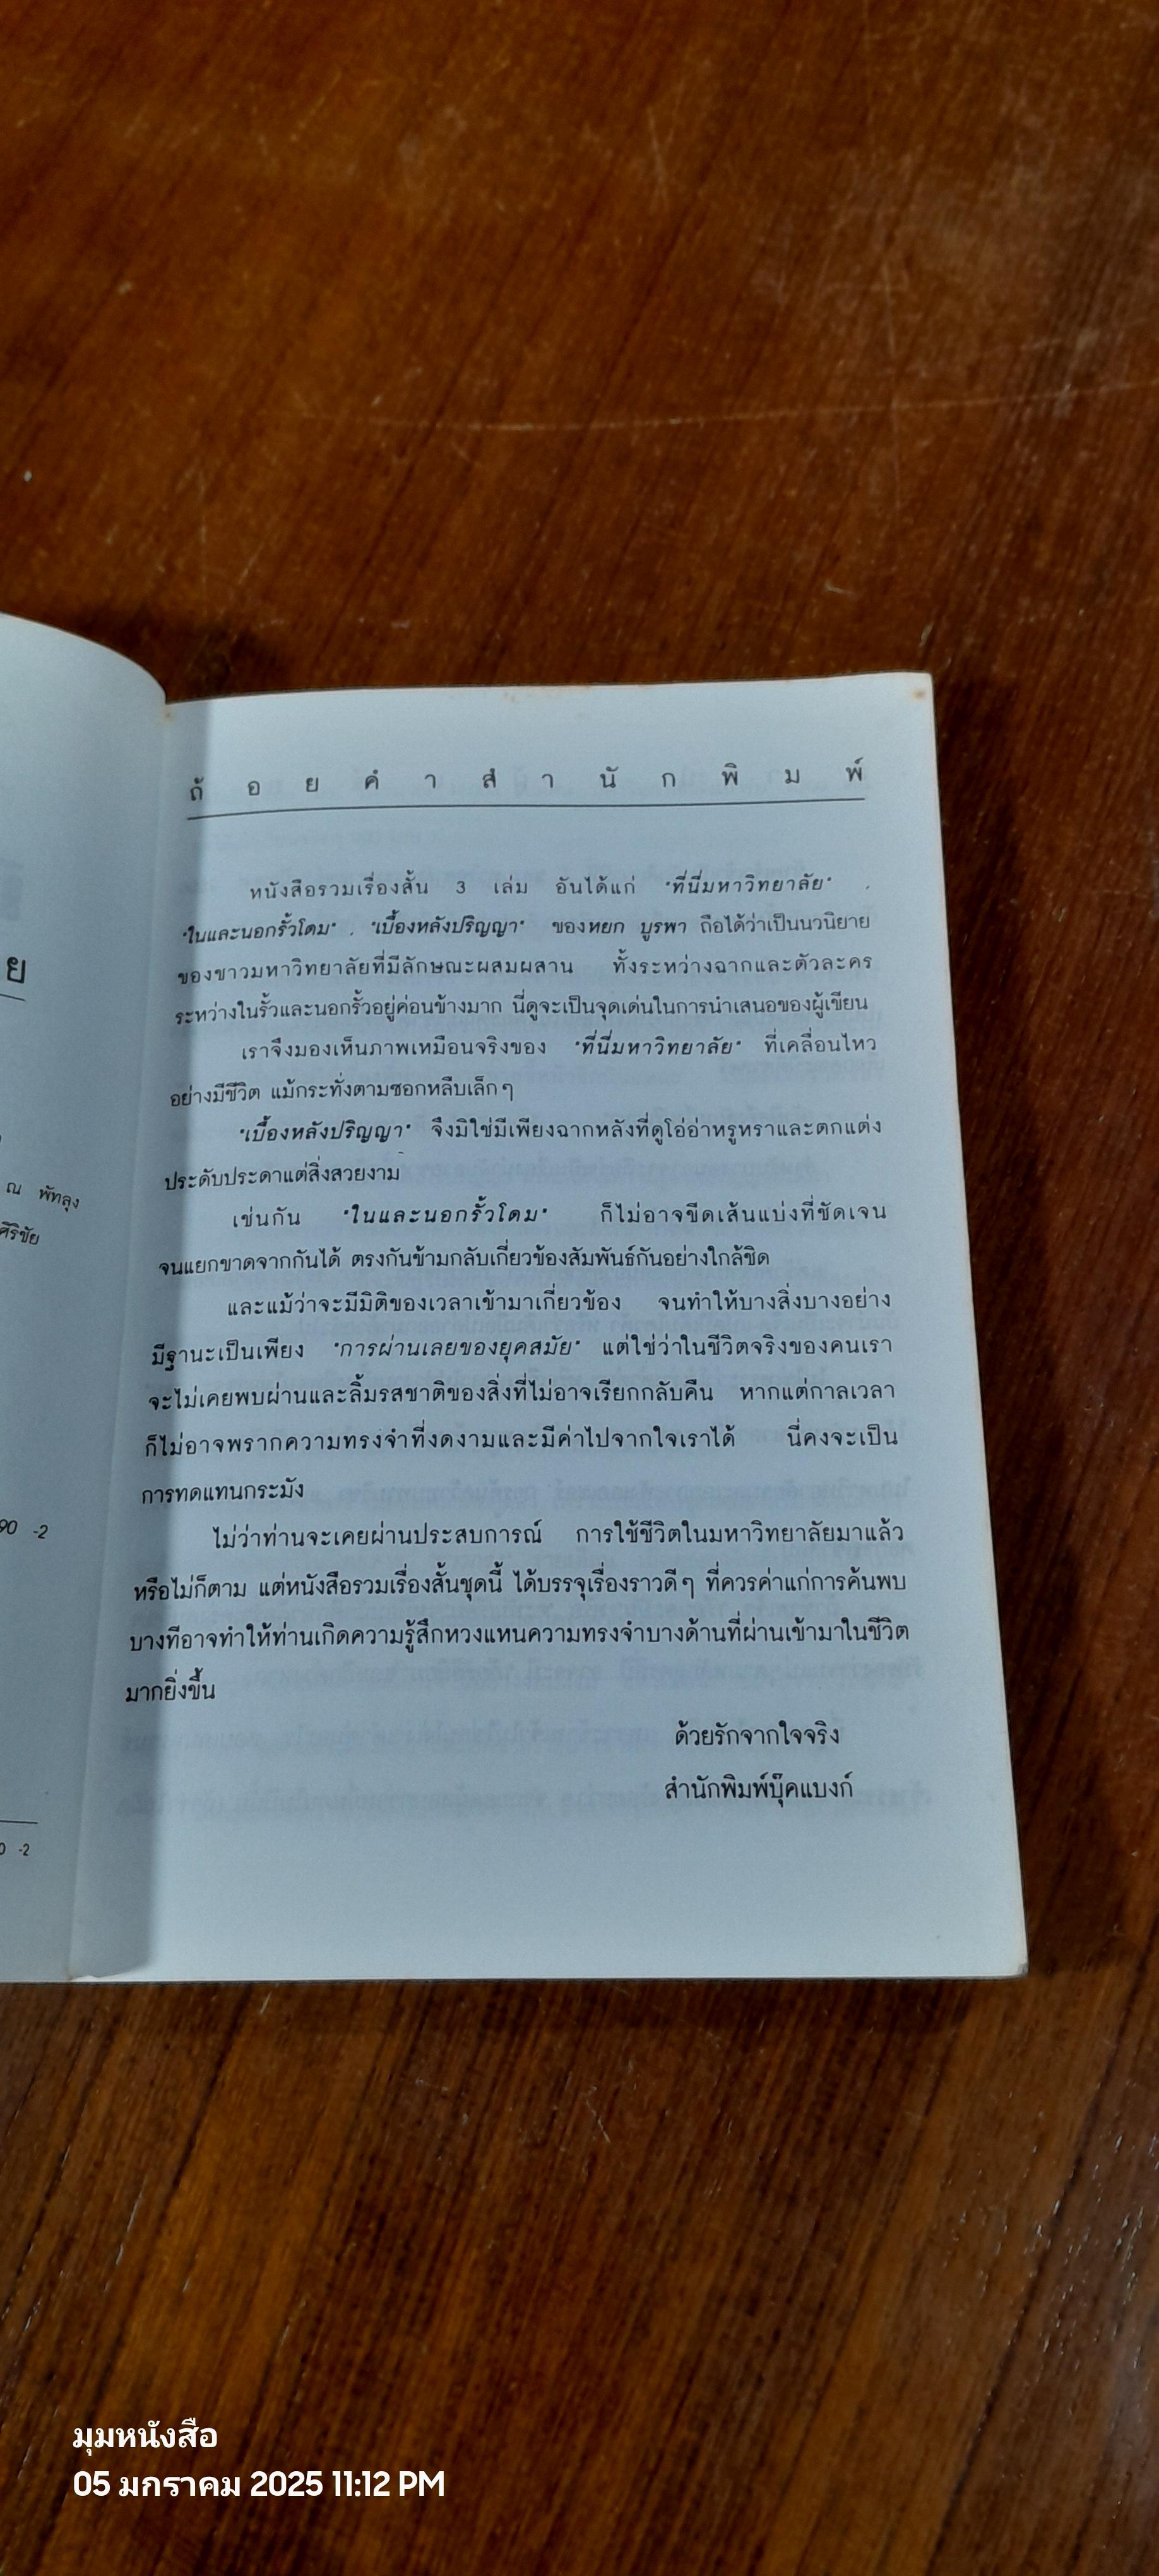 ย
ณ พัทลุง
ศิริชัย
90 -2
0 -2
ถ้อยคำสำนักพิมพ์
หนังสือรวมเรื่องสั้น 3 เล่ม อันได้แก่ "ที่นี่มหาวิทยาลัย" ,
"ในและนอกรั้วโดม" , "เบื้องหลังปริญญา" ของหยก บูรพา ถือได้ว่าเป็นนวนิยาย
ของชาวมหาวิทยาลัยที่มีลักษณะผสมผสาน ทั้งระหว่างฉากและตัวละคร
ระหว่างในรั้วและนอกรั้วอยู่ค่อนข้างมาก นี่ดูจะเป็นจุดเด่นในการนำเสนอของผู้เขียน
เราจึงมองเห็นภาพเหมือนจริงของ "ที่นี่มหาวิทยาลัย" ที่เคลื่อนไหว
อย่างมีชีวิต แม้กระทั่งตามซอกหลืบเล็กๆ
"เบื้องหลังปริญญา" จึงมิใช่มีเพียงฉากหลังที่ดูโอ่อ่าหรูหราและตกแต่ง
ประดับประดาแต่สิ่งสวยงาม
เช่นกัน "ในและนอกรั้วโดม" ก็ไม่อาจขีดเส้นแบ่งที่ชัดเจน
จนแยกขาดจากกันได้ ตรงกันข้ามกลับเกี่ยวข้องสัมพันธ์กันอย่างใกล้ชิด
และแม้ว่าจะมีมิติของเวลาเข้ามาเกี่ยวข้อง จนทำให้บางสิ่งบางอย่าง
มีฐานะเป็นเพียง "การผ่านเลยของยุคสมัย" แต่ใช่ว่าในชีวิตจริงของคนเรา
จะไม่เคยพบผ่านและลิ้มรสชาติของสิ่งที่ไม่อาจเรียกกลับคืน หากแต่กาลเวลา
ก็ไม่อาจพรากความทรงจำที่งดงามและมีค่าไปจากใจเราได้ นี่คงจะเป็น
การทดแทนกระมัง
ไม่ว่าท่านจะเคยผ่านประสบการณ์ การใช้ชีวิตในมหาวิทยาลัยมาแล้ว
หรือไม่ก็ตาม แต่หนังสือรวมเรื่องสั้นชุดนี้ ได้บรรจุเรื่องราวดีๆ ที่ควรค่าแก่การค้นพบ
บางทีอาจทำให้ท่านเกิดความรู้สึกหวงแหนความทรงจำบางด้านที่ผ่านเข้ามาในชีวิต
มากยิ่งขึ้น
ด้วยรักจากใจจริง
สำนักพิมพ์บุ๊คแบงก์
มุมหนังสือ
05 มกราคม 2025 11:12 PM